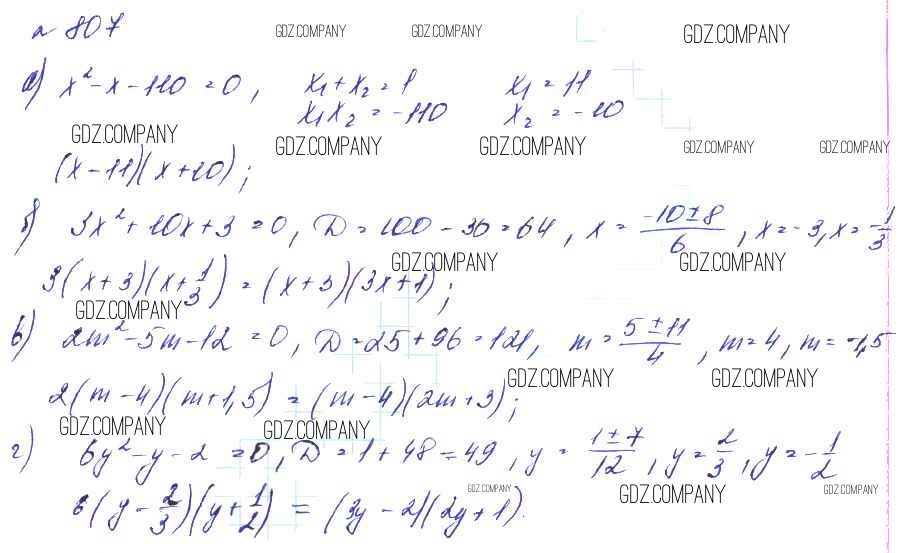 № 807
GDZ.COMPANY GDZ.COMPANY GDZ.COMPANY
а) x² - x - 110 = 0, x₁ + x₂ = 1 x₁ = 11
x₁x₂ = -110 x₂ = -10
GDZ.COMPANY GDZ.COMPANY GDZ.COMPANY GDZ.COMPANY GDZ.COMPANY
(x - 11)(x + 10);
б) 3x² + 10x + 3 = 0, D = 100 - 36 = 64, x = (-10 ± 8)/6, x = -3, x = -1/3
GDZ.COMPANY GDZ.COMPANY
3(x + 3)(x + 1/3) = (x + 3)(3x + 1);
GDZ.COMPANY
в) 2m² - 5m - 12 = 0, D = 25 + 96 = 121, m = (5 ± 11)/4, m = 4, m = -1,5
GDZ.COMPANY GDZ.COMPANY
2(m - 4)(m + 1,5) = (m - 4)(2m + 3);
GDZ.COMPANY GDZ.COMPANY
г) 6y² - y - 2 = 0, D = 1 + 48 = 49, y = (1 ± 7)/12, y = 2/3, y = -1/2
GDZ.COMPANY GDZ.COMPANY GDZ.COMPANY
6(y - 2/3)(y + 1/2) = (3y - 2)(2y + 1).